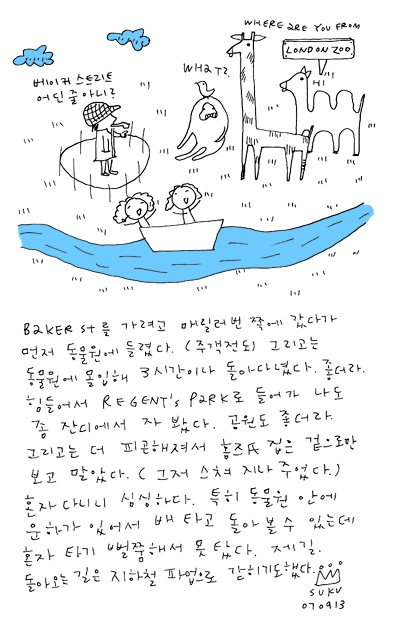 WHERE ARE YOU FROM
LONDON ZOO
HI
WHAT?
베이커 스트리트
어딘 줄 아니?
BAKER St를 가려고 매릴러번 쪽에 갔다가
먼저 동물원에 들렸다. (주객전도) 그리고는
동물원에 몰입해 3시간이나 돌아다녔다. 좋더라.
힘들어서 REGENT's PARK로 들어가 나도
좀 잔디에서 자 봤다. 공원도 좋더라.
그리고는 더 피곤해져서 홈즈氏 집은 겉으로만
보고 말았다. (그저 스쳐 지나 주었다.)
혼자 다니니 심심하다. 특히 동물원 안에
운하가 있어서 배 타고 돌아 볼 수 있는데
혼자 타기 뻘쭘해서 못 탔다. 제길.
돌아오는 길은 지하철 파업으로 갇히기도했다...
SUKU
070913